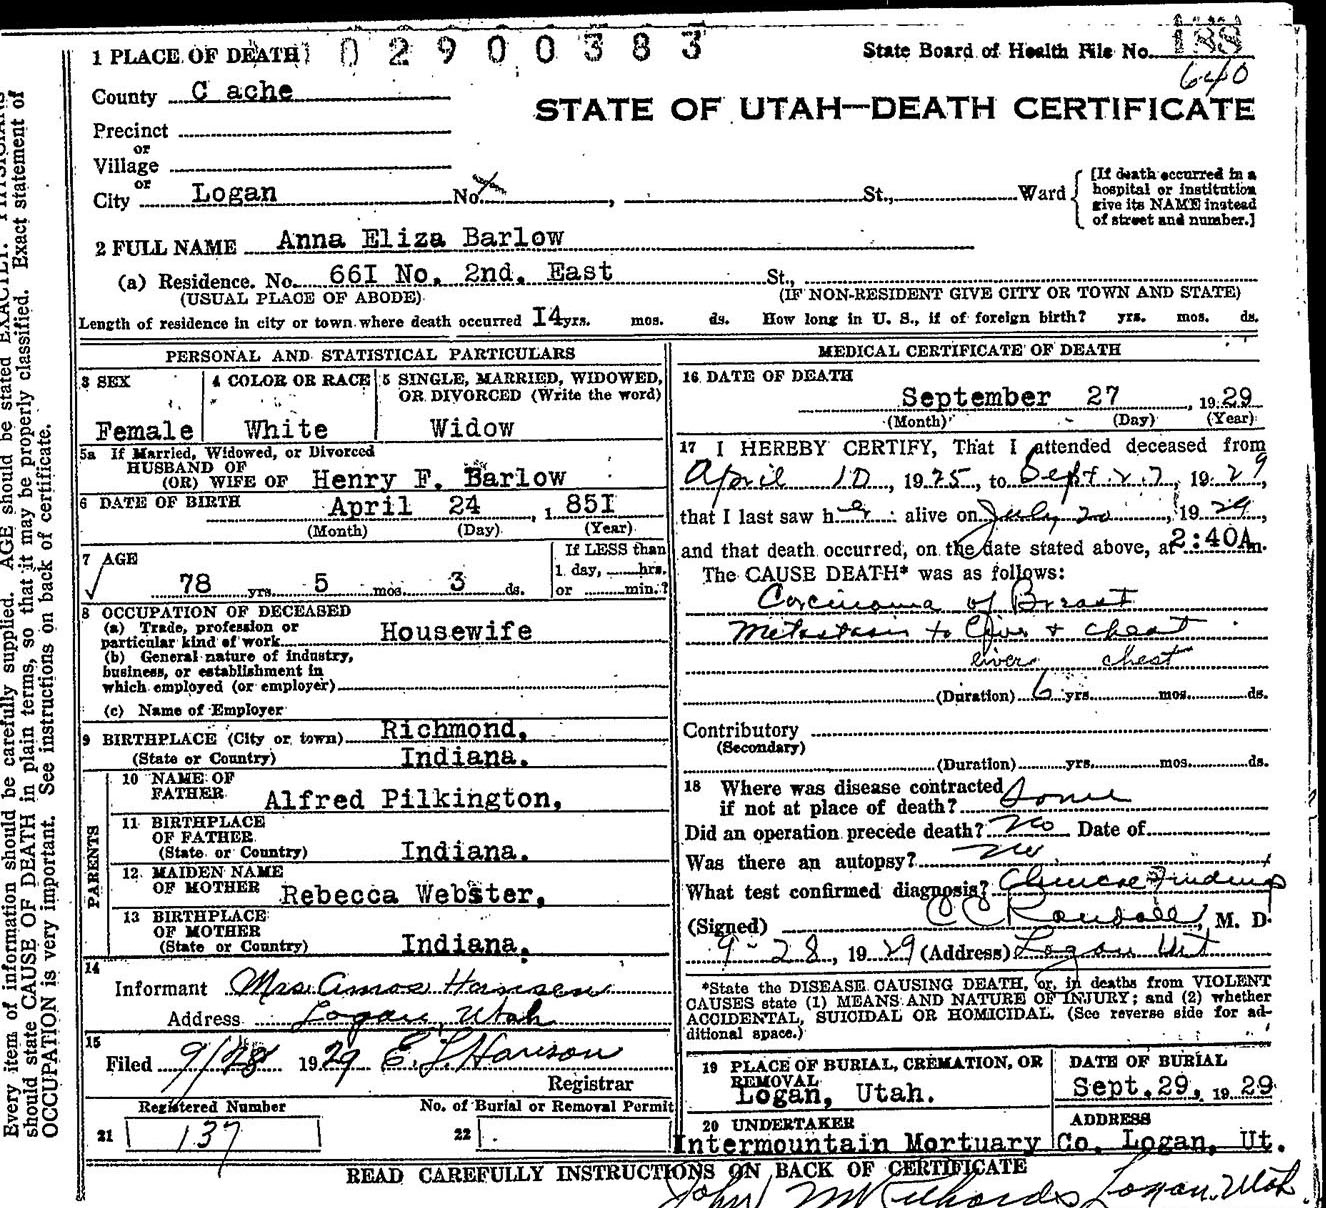 1 PLACE OF DEATH 02900383 State Board of Health File No. 188
640
County Cache
STATE OF UTAH—DEATH CERTIFICATE
Precinct
or
Village
or
City Logan No. X , St., Ward
[If death occurred in a hospital or institution give its NAME instead of street and number.]
2 FULL NAME Anna Eliza Barlow
(a) Residence. No. 66I No. 2nd. East St.,
(USUAL PLACE OF ABODE) (IF NON-RESIDENT GIVE CITY OR TOWN AND STATE)
Length of residence in city or town where death occurred I4 yrs. mos. ds. How long in U. S., if of foreign birth? yrs. mos. ds.
PERSONAL AND STATISTICAL PARTICULARS
3 SEX
Female
4 COLOR OR RACE
White
5 SINGLE, MARRIED, WIDOWED, OR DIVORCED (Write the word)
Widow
5a If Married, Widowed, or Divorced
HUSBAND OF
(OR) WIFE OF Henry F. Barlow
6 DATE OF BIRTH April 24 , 1 85I
(Month) (Day) (Year)
7 AGE
78 yrs. 5 mos. 3 ds.
If LESS than
1 day, hrs.
or min.?
8 OCCUPATION OF DECEASED
(a) Trade, profession or
particular kind of work Housewife
(b) General nature of industry,
business, or establishment in
which employed (or employer)
(c) Name of Employer
9 BIRTHPLACE (City or town) Richmond,
(State or Country) Indiana.
PARENTS
10 NAME OF
FATHER Alfred Pilkington,
11 BIRTHPLACE
OF FATHER
(State or Country) Indiana.
12 MAIDEN NAME
OF MOTHER Rebecca Webster,
13 BIRTHPLACE
OF MOTHER
(State or Country) Indiana.
14
Informant Mrs. Amos Hansen
Address Logan, Utah
15
Filed 9/28 1929 E. L. Hanson
Registrar
Registered Number
21 137
No. of Burial or Removal Permit
22
MEDICAL CERTIFICATE OF DEATH
16 DATE OF DEATH
September 27 , 1929
(Month) (Day) (Year)
17 I HEREBY CERTIFY, That I attended deceased from
April 10, 1925, to Sept. 27, 1929,
that I last saw her alive on July 20, 1929,
and that death occurred, on the date stated above, at 2:40A m.
The CAUSE DEATH* was as follows:
Carcinoma of Breast
Metastasis to liver & chest
liver chest
(Duration) 6 yrs. mos. ds.
Contributory
(Secondary)
(Duration) yrs. mos. ds.
18 Where was disease contracted
if not at place of death?
Did an operation precede death? No Date of
Was there an autopsy? No
What test confirmed diagnosis? Findings
(Signed) C C Randall, M. D.
9-28, 1929 (Address) Logan Ut
*State the DISEASE CAUSING DEATH, or, in deaths from VIOLENT
CAUSES state (1) MEANS AND NATURE OF INJURY; and (2) whether
ACCIDENTAL, SUICIDAL OR HOMICIDAL. (See reverse side for ad-
ditional space.)
19 PLACE OF BURIAL, CREMATION, OR
REMOVAL
Logan, Utah.
DATE OF BURIAL
Sept. 29, 1929
20 UNDERTAKER ADDRESS
Intermountain Mortuary Co. Logan, Ut.
READ CAREFULLY INSTRUCTIONS ON BACK OF CERTIFICATE
John M Richards Logan, Utah.
Every item of information should be carefully supplied. AGE should be stated EXACTLY. PHYSICIANS
should state CAUSE OF DEATH in plain terms, so that it may be properly classified. Exact statement of
OCCUPATION is very important. See instructions on back of certificate.